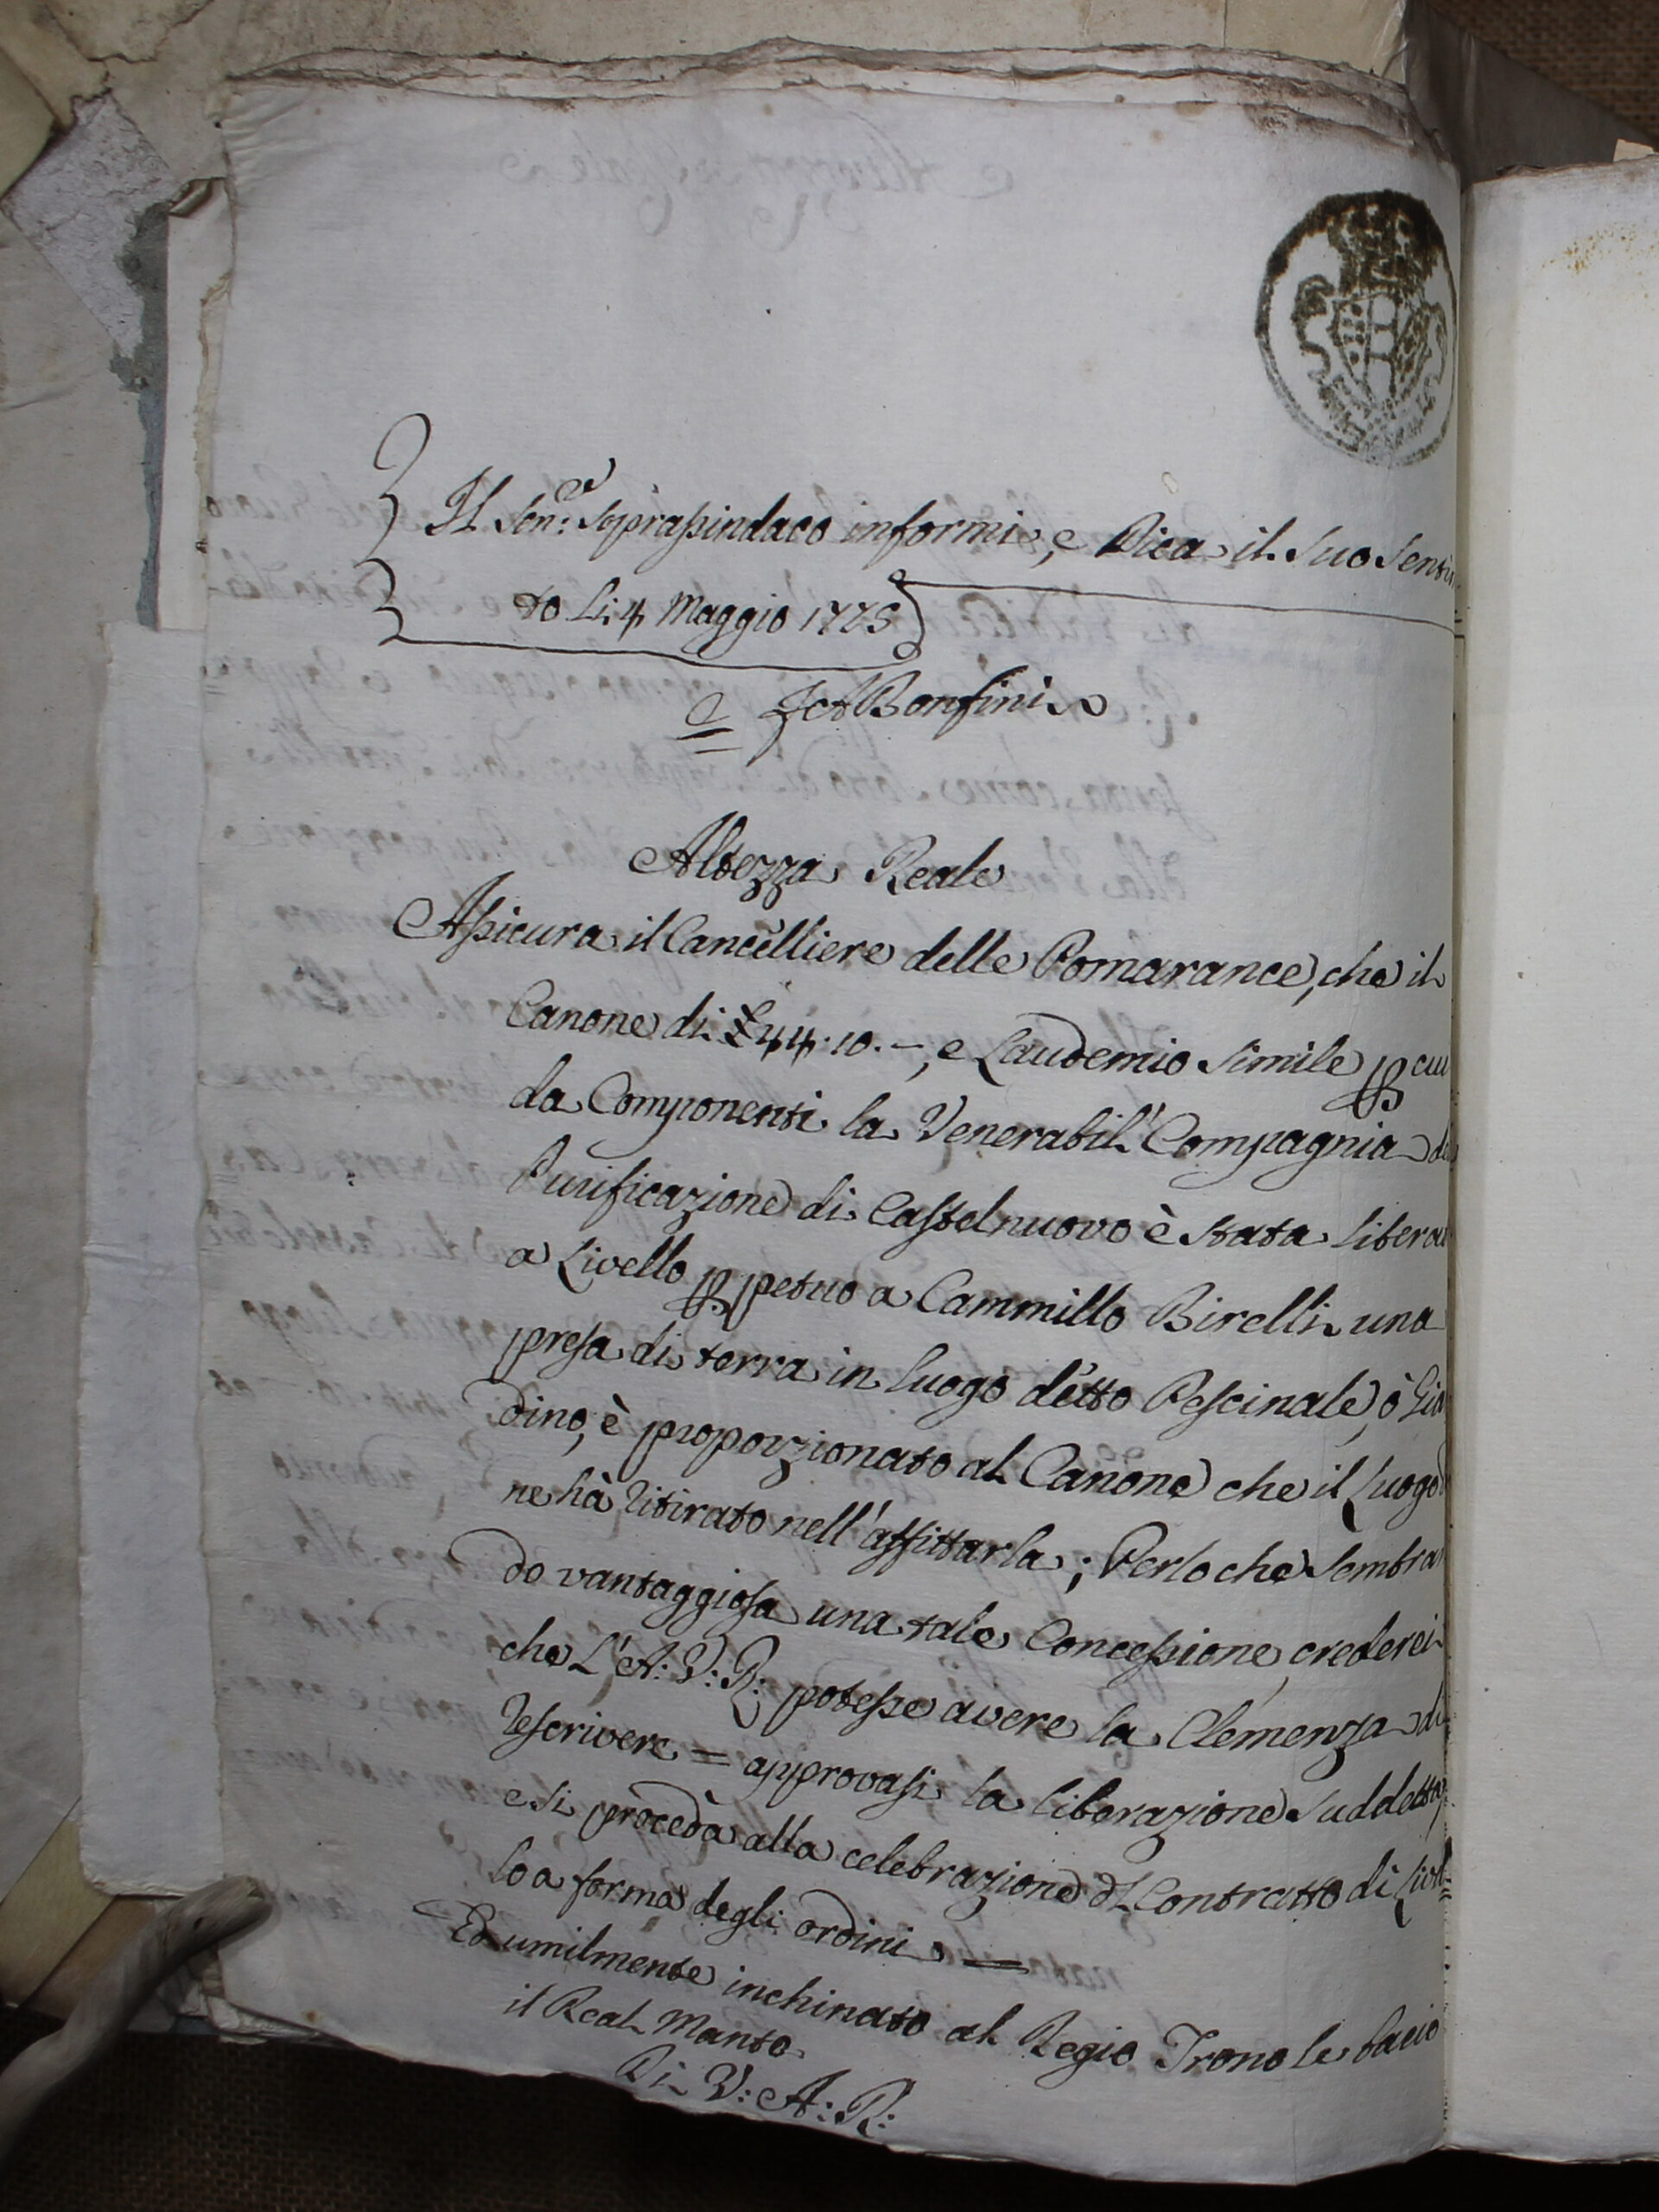 Il Sen:re Soprassindaco informi, e Dica il Suo Senti
to Li 4 Maggio 1775
Bonfini
Altezza Reale
Assicura il Cancelliere delle Pomarance, che il
Canone di £ 44. 10. -, e Laudemio Simile p cui
da Componenti la Venerabil' Compagnia de
Purificazione di Castelnuovo è stata libera
a Livello ppetuo a Cammillo Birelli una
presa di terra in luogo detto Pescinale, ò Gia
dino, è proporzionato al Canone che il Luogo
ne hà ritirato nell' affittarla; Perloche Sembra
do vantaggiosa una tale Concessione, crederei
che L' A: V: R: potesse avere la Clemenza di
Rescrivere = approvasi la liberazione Suddetta,
e si procedà alla celebrazione dl Contratto di Livel
lo a forma degli ordini =
Ed umilmente inchinato al Regio Trono le bacio
il Real Manto
Di V: A: R: